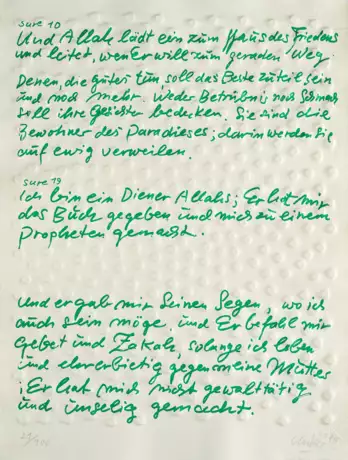 Sure 10
Und Allah lädt ein zum Haus des Friedens
und leitet, wen Er will zum geraden Weg.
Denen, die gutes tun soll das Beste zuteil sein
und noch mehr. Weder Betrübnis noch Schmach
soll ihre Gesichter bedecken. Sie sind die
Bewohner des Paradieses; darin werden Sie
auf ewig verweilen.
Sure 19
Ich bin ein Diener Allahs; Er hat mir
das Buch gegeben und mich zu einem
Propheten gemacht.
Und er gab mir Seinen Segen, wo ich
auch sein möge, und Er befahl mir
Gebet und Zakah, solange ich lebe
und ehrerbietig gegen meine Mutter
Er hat mich nicht gewalttätig
und unselig gemacht.